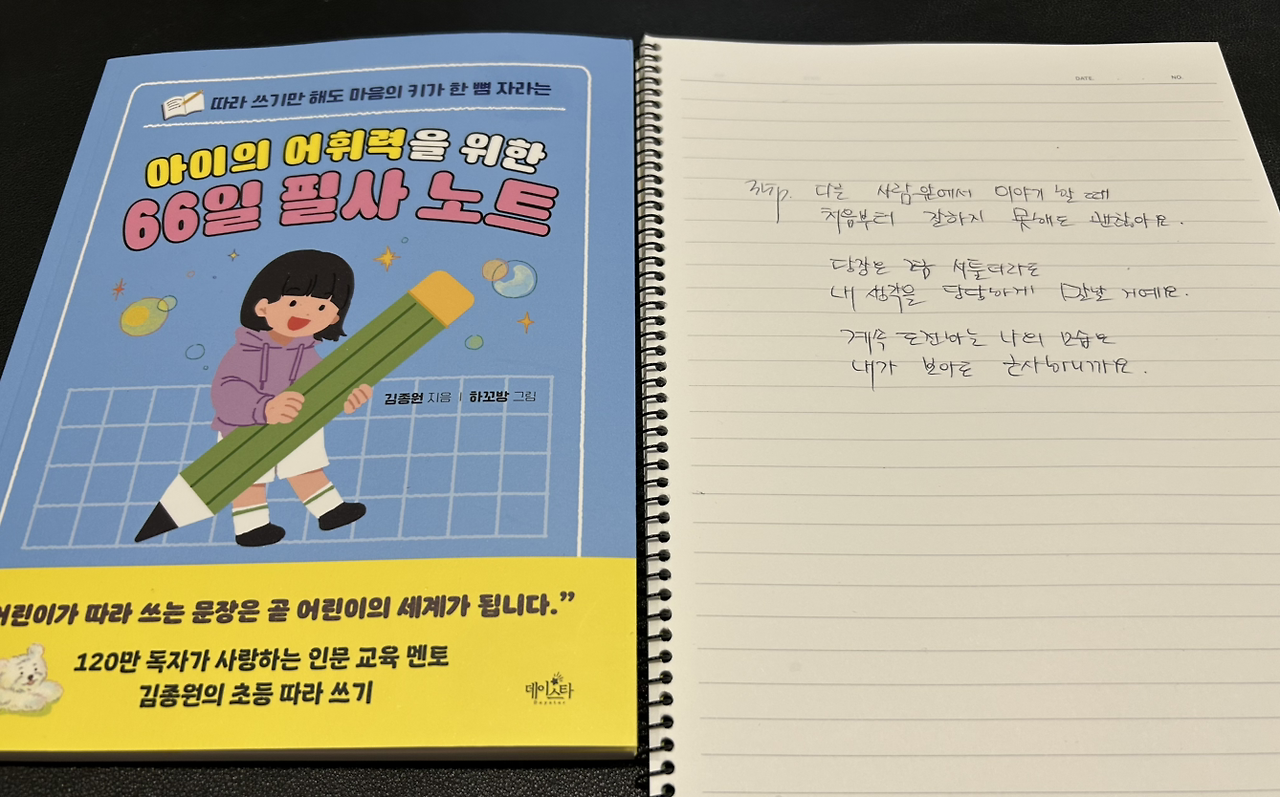 따라 쓰기만 해도 마음의 키가 한 뼘 자라는
아이의 어휘력을 위한
66일 필사 노트
김종원 지음 | 하꼬방 그림
어린이가 따라 쓰는 문장은 곧 어린이의 세계가 됩니다.”
120만 독자가 사랑하는 인문 교육 멘토
김종원의 초등 따라 쓰기
데이스타
Daystar
DATE. . . NO.
다른 사람 앞에서 이야기 할 때
처음부터 잘하지 못해도 괜찮아요.
당장은 서툴더라도
내 생각을 당당하게 말할 거예요.
계속 도전하는 나의 모습은
내가 보아도 근사하니까요.